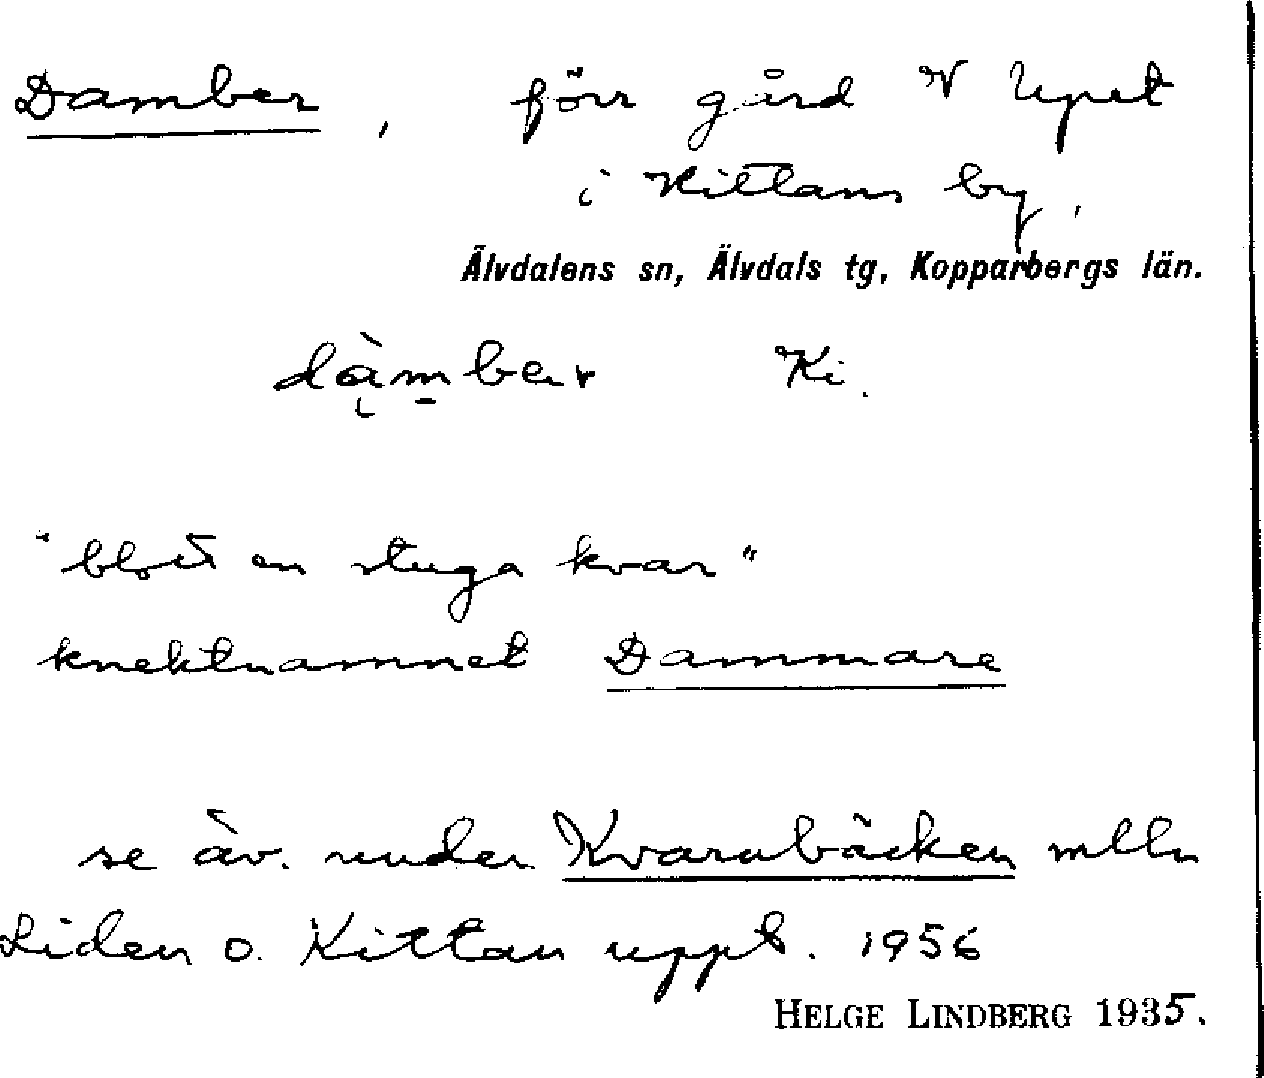 Damber, förr gård V Upet
i Kittans by,
Älvdalens sn, Älvdals tg, Kopparbergs län.
dàmber Ki.
"blott en stuga kvar"
knektnamnet Dammare
se äv. under Kvarnbäcken mlln
Liden o. Kittan uppt. 1956
HELGE LINDBERG 1935.